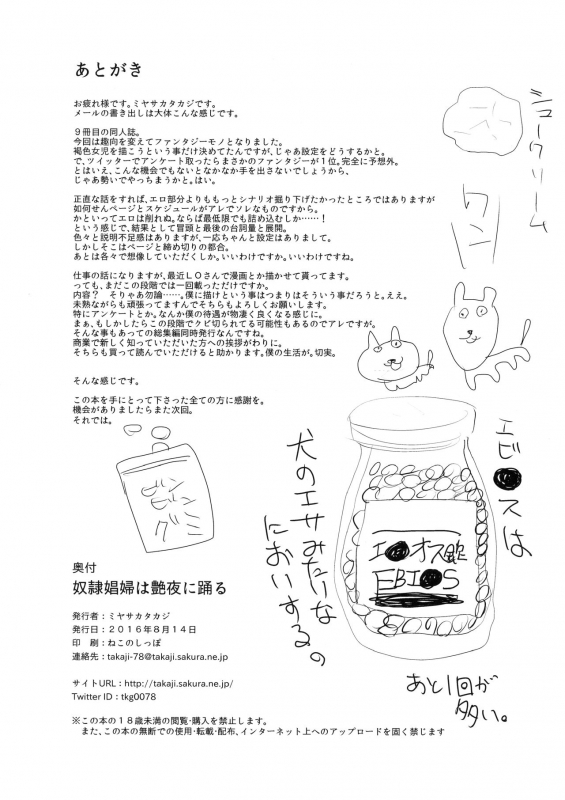 あとがき
お疲れ様です。ミヤサカタカジです。
メールの書き出しは大体こんな感じです。
９冊目の同人誌。
今回は趣向を変えてファンタジーモノとなりました。
褐色女児を描こうという事だけ決めてたんですが、じゃあ設定をどうするかと。
で、ツイッターでアンケート取ったらまさかのファンタジーが１位。完全に予想外。
とはいえ、こんな機会でもないとなかなか手を出さないでしょうから、
じゃあ勢いでやっちまうかと。はい。
正直な話をすれば、エロ部分よりももっとシナリオ掘り下げたかったところではありますが
如何せんページとスケジュールがアレでソレなものですから。
かといってエロは削れぬ。ならば最低限でも詰め込むしか……！
という感じで、結果として冒頭と最後の台詞量と展開。
色々と説明不足感はありますが、一応ちゃんと設定はありまして。
しかしそこはページと締め切りの都合。
あとは各々で想像していただくしか。いいわけですか。いいわけですね。
仕事の話になりますが、最近ＬＯさんで漫画とか描かせて貰ってます。
っても、まだこの段階では一回載っただけですか。
内容？　そりゃあ勿論……。僕に描けという事はつまりはそういう事だろうと。ええ。
未熟ながらも頑張ってますんでそちらもよろしくお願いします。
特にアンケートとか。なんか僕の待遇が物凄く良くなる感じに。
まぁ、もしかしたらこの段階でクビ切られてる可能性もあるのでアレですが。
そんな事もあっての総集編同時発行なんですね。
商業で新しく知っていただいた方への挨拶がわりに。
そちらも買って読んでいただけると助かります。僕の生活が。切実。
そんな感じです。
この本を手にとって下さった全ての方に感謝を。
機会がありましたらまた次回。
それでは。
シュークリーム
ワンワン
グミ
エビ●スは
犬のエサみたいな
においするの
エ●オス錠
EBI●S
あと1回が
多い。
奥付
奴隷娼婦は艶夜に踊る
発行者：ミヤサカタカジ
発行日：２０１６年８月１４日
印　刷：ねこのしっぽ
連絡先：takaji-78@takaji.sakura.ne.jp
サイトURL：http://takaji.sakura.ne.jp/
Twitter ID：tkg0078
※この本の１８歳未満の閲覧・購入を禁止します。
また、この本の無断での使用・転載・配布、インターネット上へのアップロードを固く禁じます